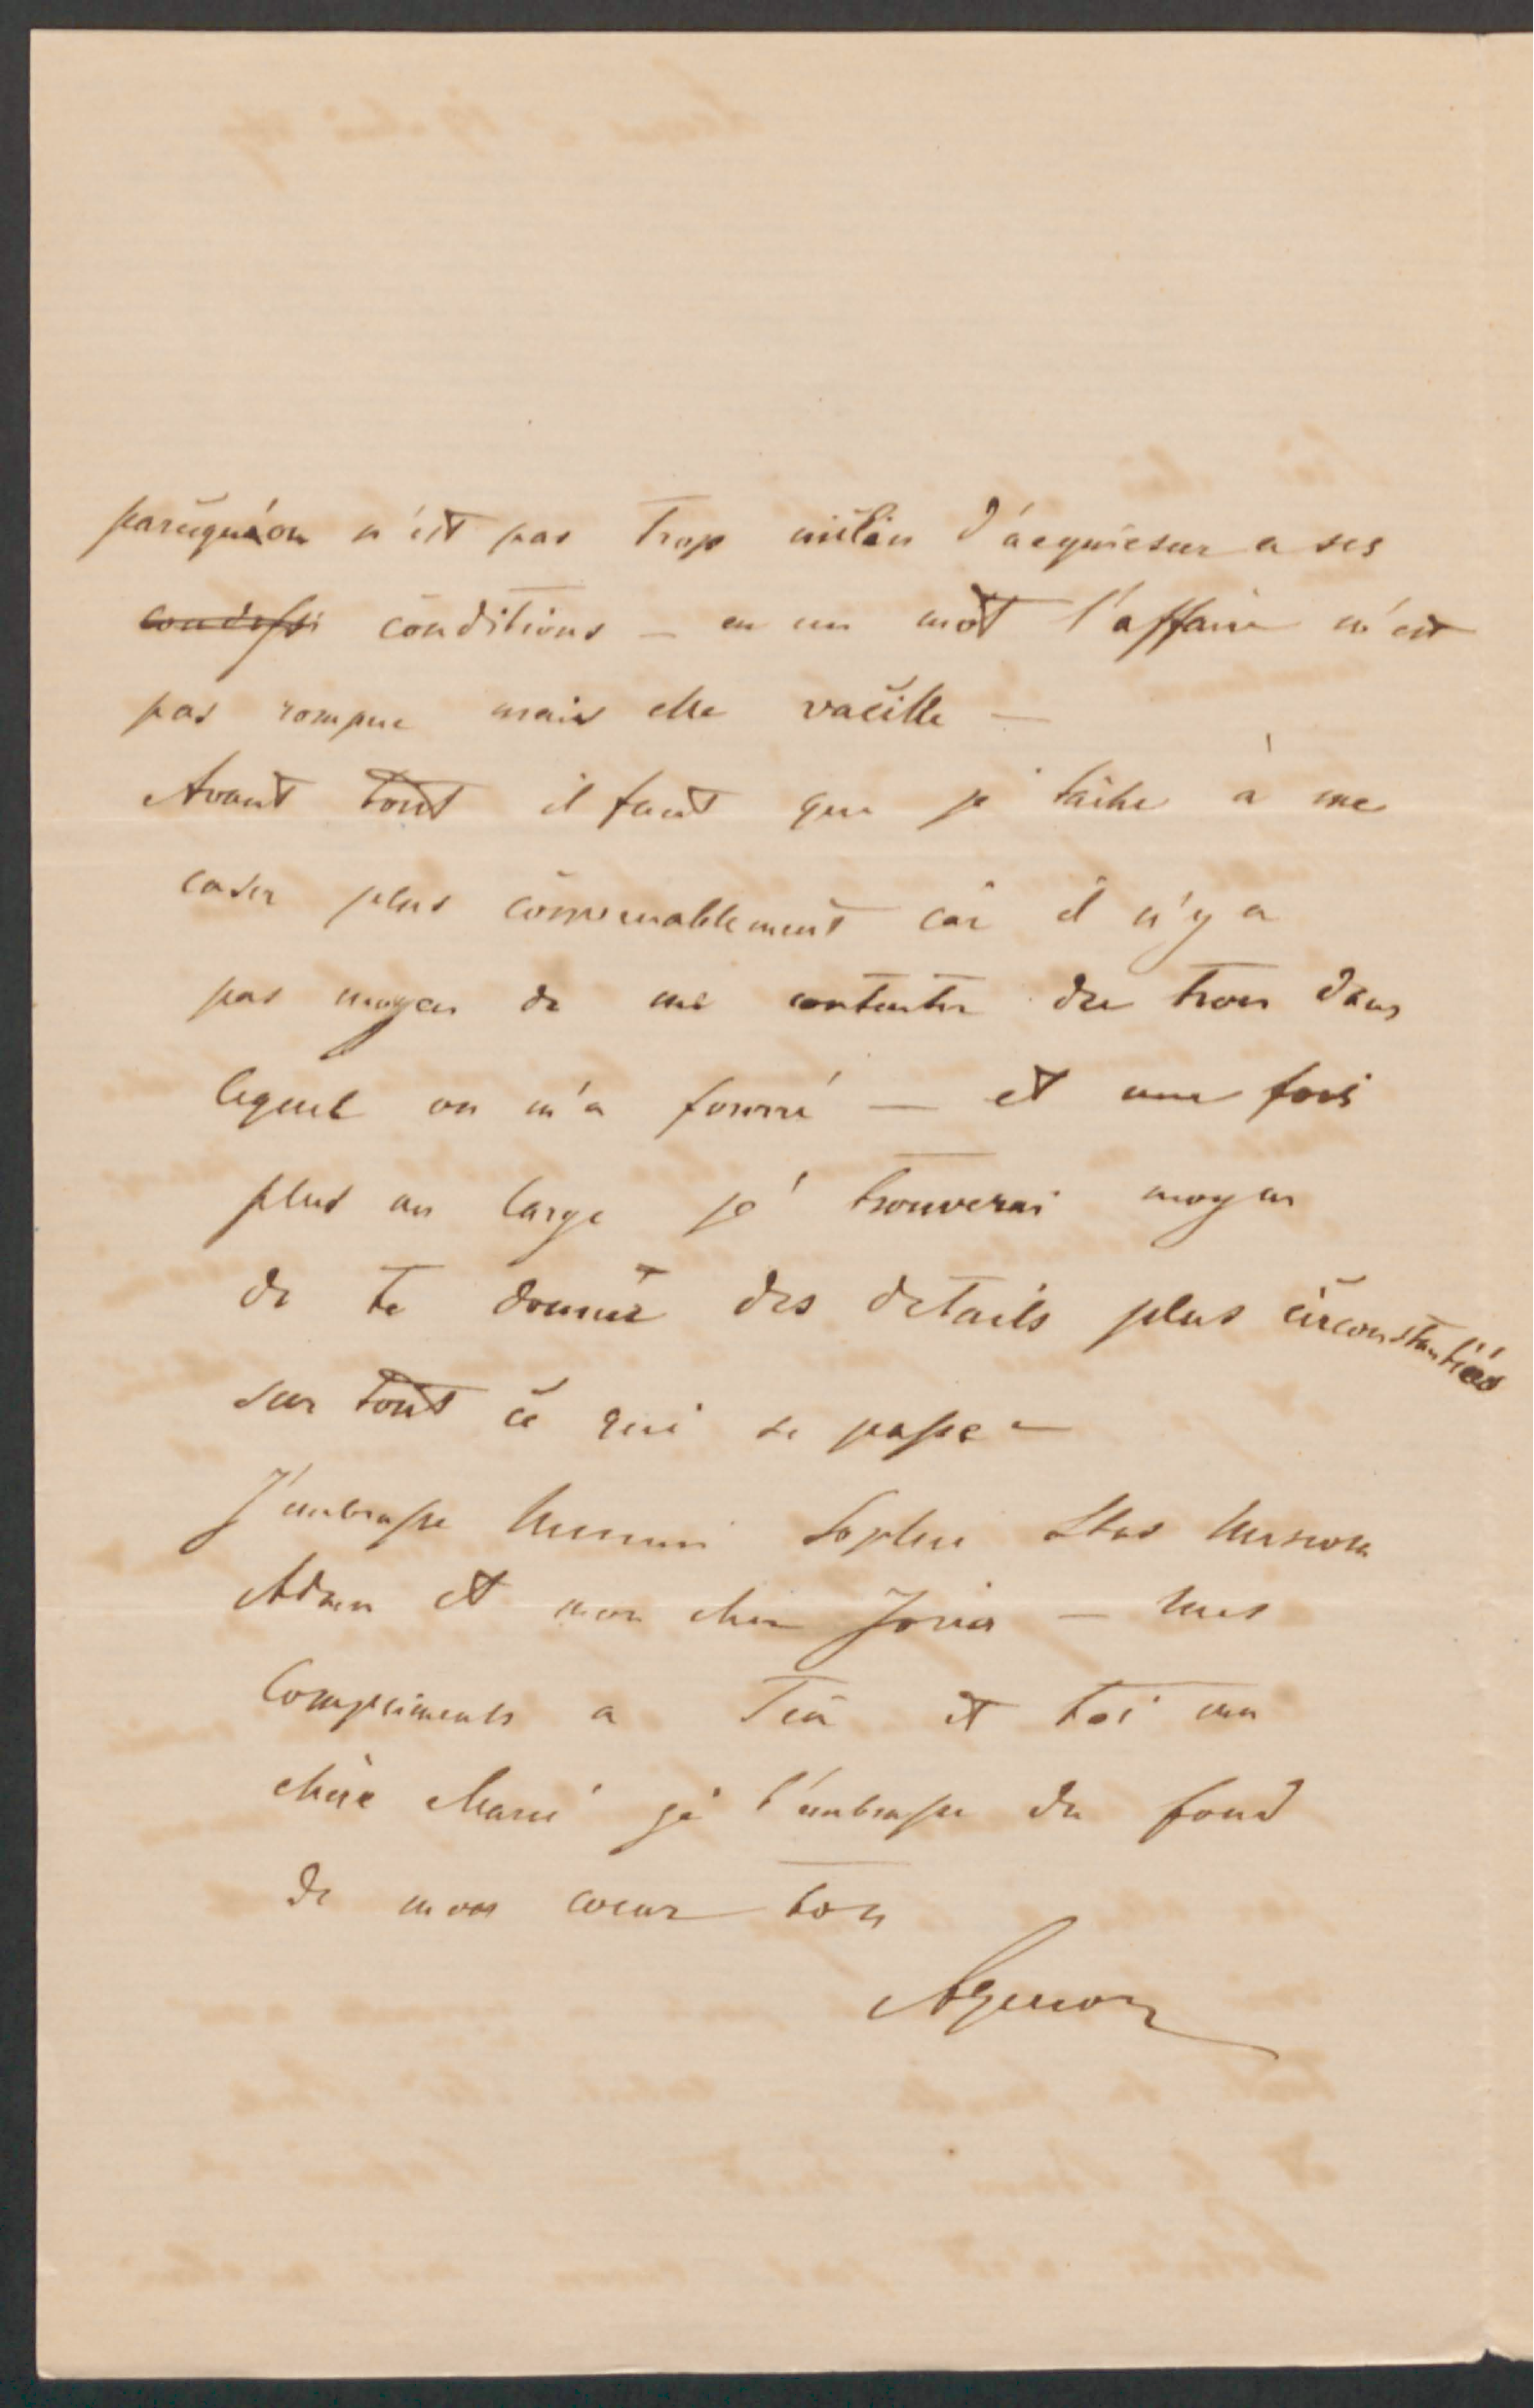 parcequ'on n'est pas trop enclin d'acquiescer a ses
condissi conditions — en un mot l'affaire n'est
pas rompue mais elle vacille —
Avant tout il faut que je tâche à me
caser plus convenablement car il n'y a
pas moyen de me contenter du trou dans
lequel on m'a fourré — et une fois
plus au large je trouverai moyen
de te donner des details plus circonstantiés
sur tout ce qui se passe —
J'embrasse Mimi Sophie Stas
Adam et mon cher Jozia — mes
Compliments a et toi ma
chère Marie je t'embrasse du fond
de mon coeur ton
Agenor